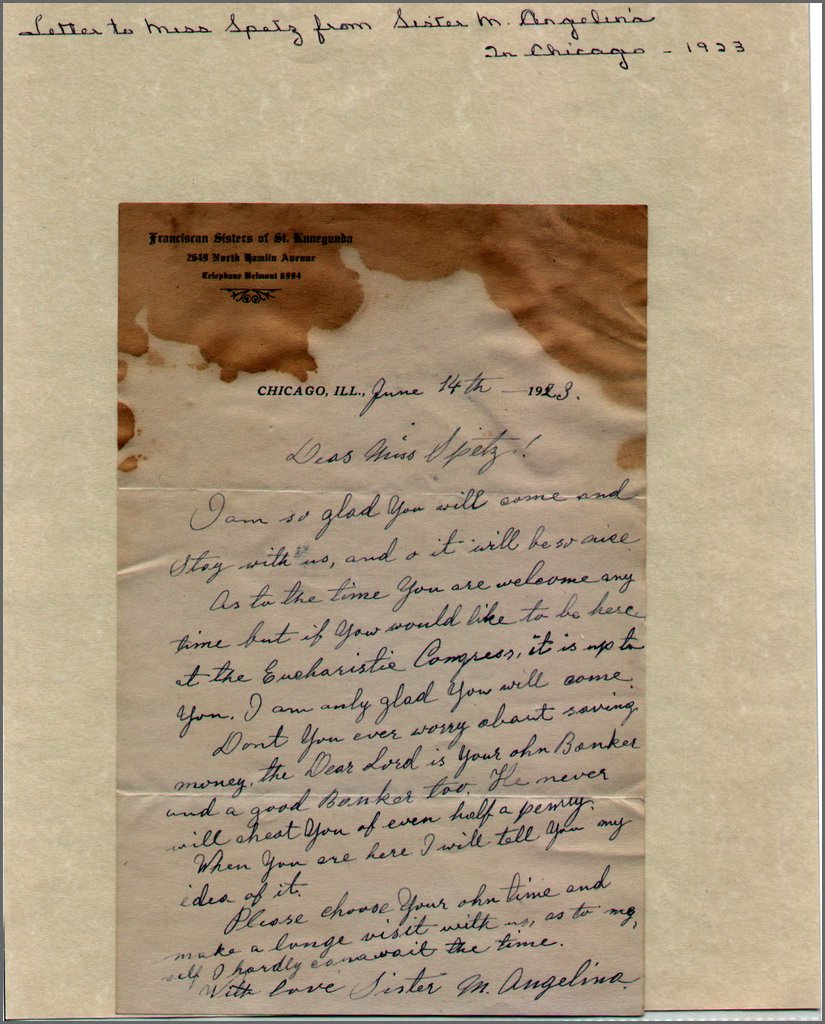 Letter to Miss Spetz from Sister M. Angelina
In Chicago - 1923
Franciscan Sisters of St. Kunegunda
2649 North Hamlin Avenue
Telephone Belmont 6994
CHICAGO, ILL., June 14th — 1923.
Dear Miss Spetz!
I am so glad You will come and
stay with us, and o it will be so nice
As to the time You are welcome any
time but if You would like to be here
at the Eucharistic Congress, it is up to
You. I am only glad You will come.
Dont You ever worry about saving
money, the Dear Lord is Your ohn Banker
and a good Banker too. He never
will cheat You of even half a penny.
When You are here I will tell You my
idea of it.
Please choose Your ohn time and
make a longe visit with us, as to my
self I hardly can await the time.
With love Sister M. Angelina.